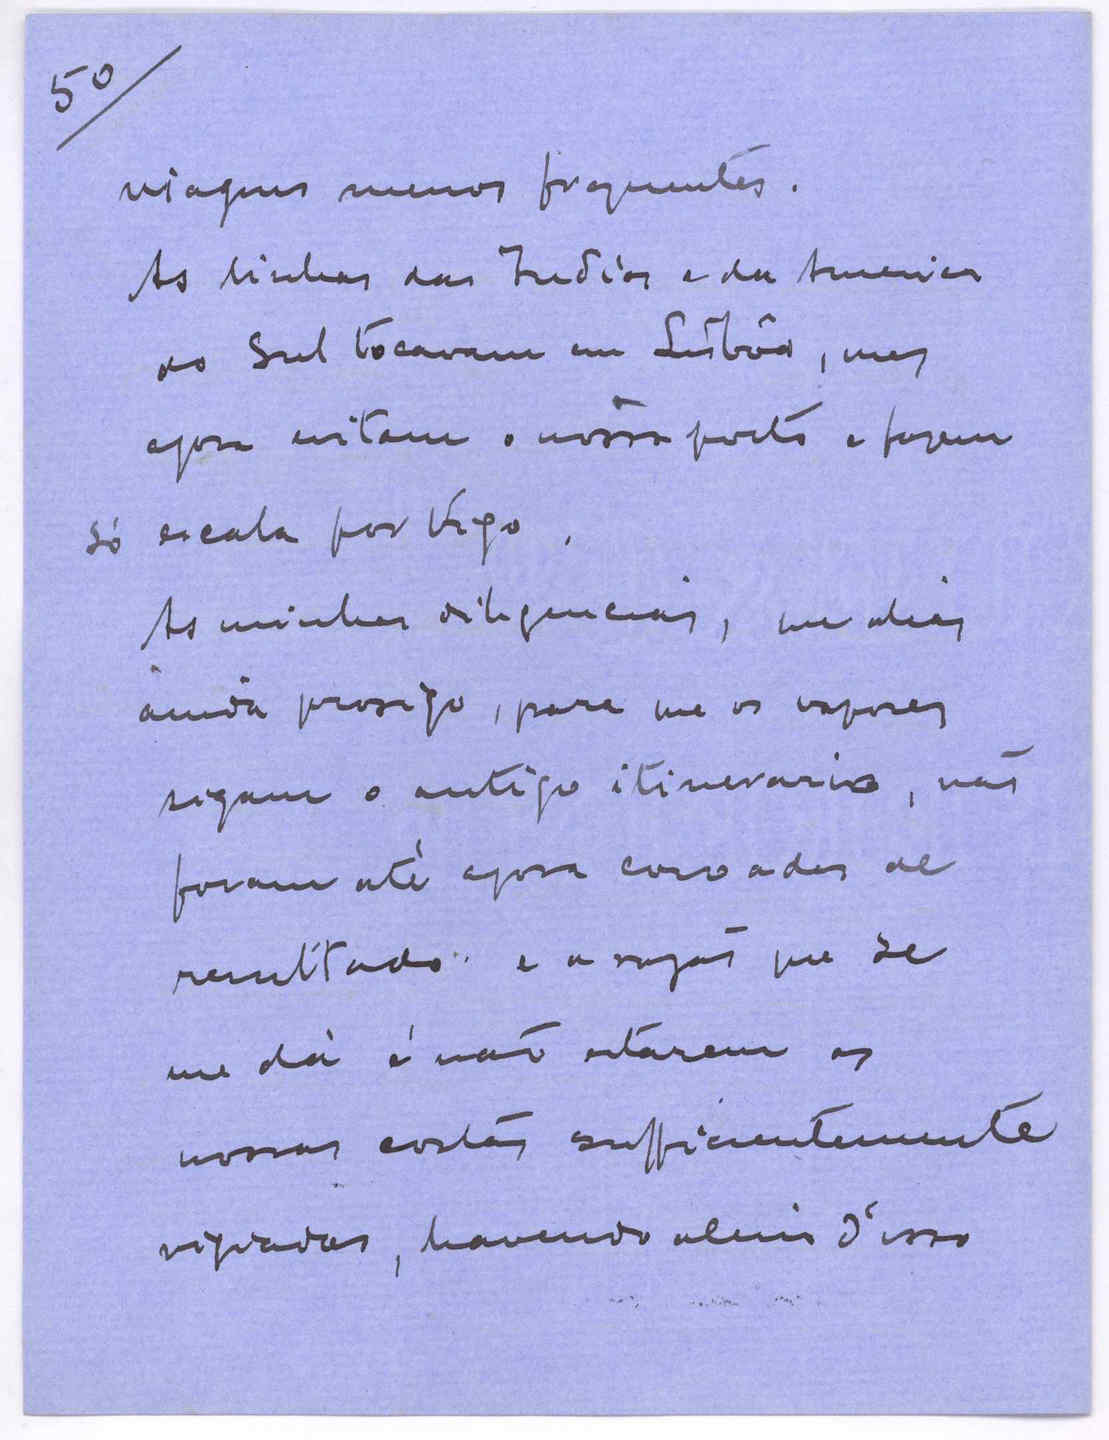 50
viagens menos frequentes.
As linhas das Indias e da America
do Sul tocavam em Lisbôa, mas
agora evitam o nosso porto e fazem
só escala por Vigo.
As minhas diligencias, que aliás
ainda prosigo, para que os vapores
sigam o antigo itinerario, não
foram até agora coroadas de
resultado e a razão que se
me dá é não estarem as
nossas costas sufficientemente
vigiadas, havendo alem d'isso